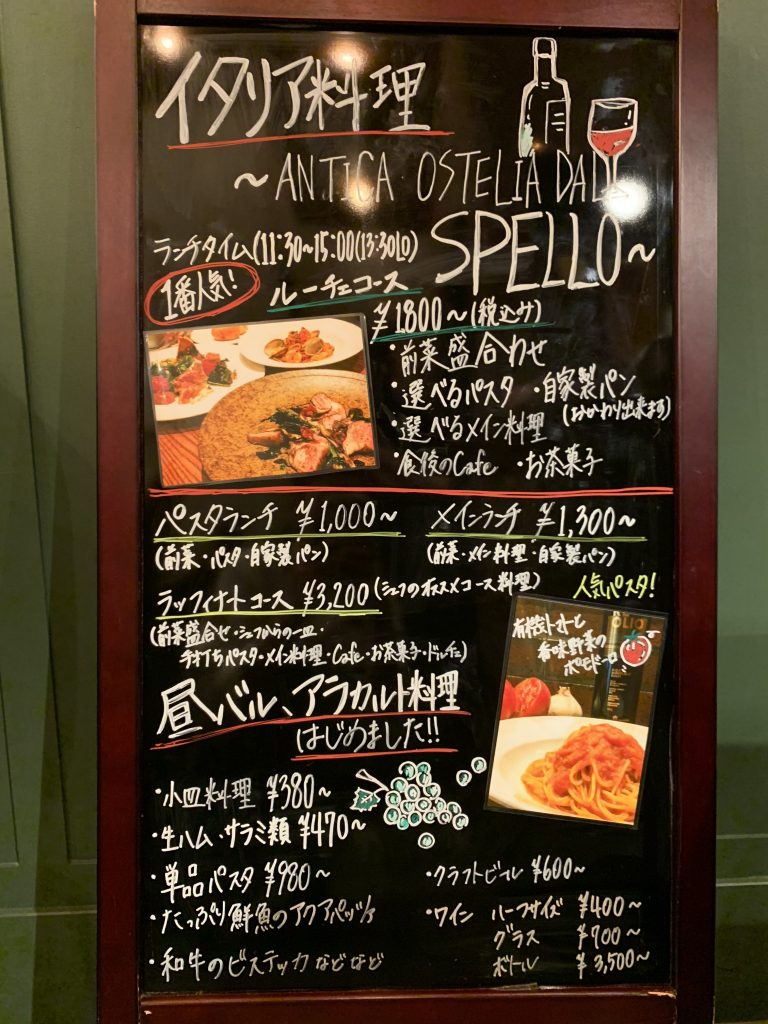 イタリア料理
～ANTICA OSTELIA DAL
SPELLO～
ランチタイム(11:30～15:00(13:30LO)
1番人気! ルーチェコース
¥1800～(税込み)
・前菜盛合わせ
・選べるパスタ ・自家製パン
(おかわり出来ます)
・選べるメイン料理
・食後のCafe ・お茶菓子
パスタランチ ¥1,000～
(前菜・パスタ・自家製パン)
メインランチ ¥1,300～
(前菜・メイン料理・自家製パン)
ラッフィナートコース ¥3,200(シェフのオススメコース料理)
(前菜盛合せ・シェフからの一皿・
手打ちパスタ・メイン料理・Cafe・お茶菓子・ドルチェ)
人気パスタ!
有機トマトと
香味野菜の
ポモドーロ
OLIO
昼バル、アラカルト料理
はじめました!!
・小皿料理 ¥380～
・生ハム・サラミ類 ¥470～
・単品パスタ ¥980～
・たっぷり鮮魚のアクアパッツァ
・和牛のビステッカなどなど
・クラフトビール ¥600～
・ワイン ハーフサイズ ¥400～
グラス ¥700～
ボトル ¥3,500～